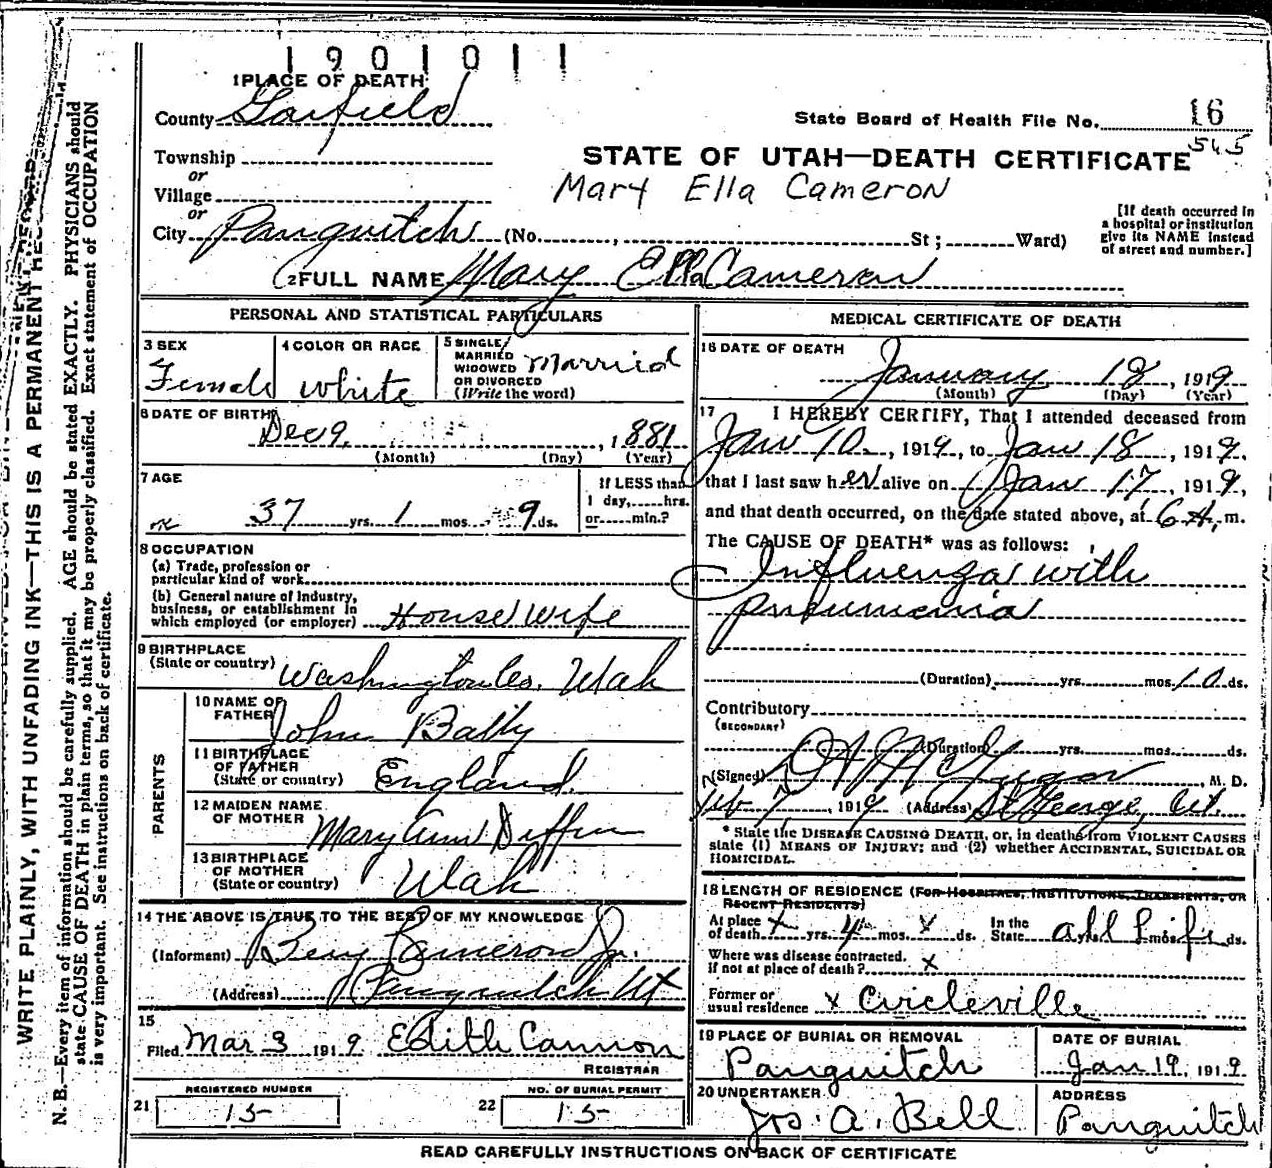 1901011
1 PLACE OF DEATH
County Garfield
State Board of Health File No. 16
545
Township
or
STATE OF UTAH—DEATH CERTIFICATE
Village
Mary Ella Cameron
or
City Panguitch (No. , St ; Ward)
[If death occurred in
a hospital or institution
give its NAME instead
of street and number.]
2 FULL NAME Mary Ella Cameron
PERSONAL AND STATISTICAL PARTICULARS
3 SEX
Female
4 COLOR OR RACE
White
5 SINGLE
MARRIED
WIDOWED
OR DIVORCED
(Write the word)
Married
6 DATE OF BIRTH
Dec 9, 1881
(Month) (Day) (Year)
7 AGE
37 yrs. 1 mos. 9 ds.
If LESS than
1 day, hrs.
or min.?
8 OCCUPATION
(a) Trade, profession or
particular kind of work
(b) General nature of industry,
business, or establishment in
which employed (or employer) House Wife
9 BIRTHPLACE
(State or country) Washington Co. Utah
PARENTS
10 NAME OF
FATHER John Batty
11 BIRTHPLACE
OF FATHER
(State or country) England
12 MAIDEN NAME
OF MOTHER Mary Ann
13 BIRTHPLACE
OF MOTHER
(State or country) Utah
14 THE ABOVE IS TRUE TO THE BEST OF MY KNOWLEDGE
(Informant) Benj Cameron Jr.
(Address) Panguitch Ut
15
Filed Mar 3 1919 Edith Cannon
REGISTRAR
REGISTERED NUMBER
21 15
NO. OF BURIAL PERMIT
22 15
MEDICAL CERTIFICATE OF DEATH
16 DATE OF DEATH
January 18, 1919
(Month) (Day) (Year)
17 I HEREBY CERTIFY, That I attended deceased from
Jan 10, 1919, to Jan 18, 1919,
that I last saw her alive on Jan 17, 1919,
and that death occurred, on the date stated above, at 6 A. m.
The CAUSE OF DEATH* was as follows:
Influenza with
pneumonia
(Duration) yrs. mos. 10 ds.
Contributory
(SECONDARY)
(Duration) yrs. mos. ds.
(Signed) M. D.
1919 (Address) St George, Ut.
* State the DISEASE CAUSING DEATH, or, in deaths from VIOLENT CAUSES
state (1) MEANS OF INJURY; and (2) whether ACCIDENTAL, SUICIDAL OR
HOMICIDAL.
18 LENGTH OF RESIDENCE (FOR HOSPITALS, INSTITUTIONS, TRANSIENTS, OR
RECENT RESIDENTS)
At place
of death x yrs. 4 mos. x ds.
In the
State all Life yrs. mos. ds.
Where was disease contracted.
if not at place of death? x
Former or
usual residence x Circleville
19 PLACE OF BURIAL OR REMOVAL
Panguitch
DATE OF BURIAL
Jan 19, 1919
20 UNDERTAKER
Jos. A. Bell
ADDRESS
Panguitch
READ CAREFULLY INSTRUCTIONS ON BACK OF CERTIFICATE
WRITE PLAINLY, WITH UNFADING INK—THIS IS A PERMANENT RECORD
N. B.—Every item of information should be carefully supplied. AGE should be stated EXACTLY. PHYSICIANS should
state CAUSE OF DEATH in plain terms, so that it may be properly classified. Exact statement of OCCUPATION
is very important. See instructions on back of certificate.